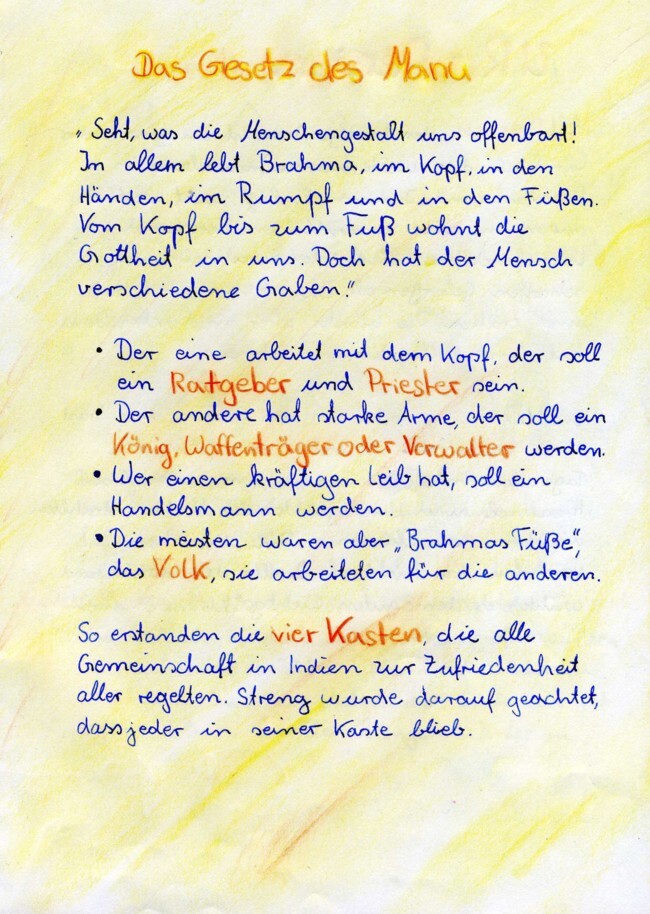 Das Gesetz des Manu
„Seht, was die Menschengestalt uns offenbart!
In allem lebt Brahma, im Kopf, in den
Händen, im Rumpf und in den Füßen.
Vom Kopf bis zum Fuß wohnt die
Gottheit in uns. Doch hat der Mensch
verschiedene Gaben."
• Der eine arbeitet mit dem Kopf, der soll
ein Ratgeber und Priester sein.
• Der andere hat starke Arme, der soll ein
König, Waffenträger oder Verwalter werden.
• Wer einen kräftigen Leib hat, soll ein
Handelsmann werden.
• Die meisten waren aber „Brahmas Füße",
das Volk, sie arbeiteten für die anderen.
So erstanden die vier Kasten, die alle
Gemeinschaft in Indien zur Zufriedenheit
aller regelten. Streng wurde darauf geachtet,
dass jeder in seiner Kaste blieb.